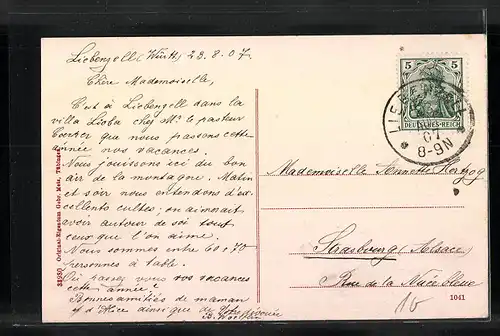 Liebenzell (Württ) 23.8.07
Chère Mademoiselle,
C'est à Liebenzell dans la
villa Lioba chez Mr le pasteur
que nous passons cette
année nos vacances.
Nous jouissons ici du bon
air de la montagne. Matin
et soir nous entendons d'ex-
cellents cultes; on aimerait
avoir autour de soi tout
ceux que l'on aime.
Nous sommes entre 60 & 70
personnes à table.
Où passez vous vos vacances
cette année?
Bonnes amitiés de maman
et d'Alice ainsi que de votre dévouée
5
5
DEUTSCHES REICH
LIEBENZELL
07
8-9N
Mademoiselle Annette Hertzog
Strasbourg (Alsace)
Rue de la Nuée bleue
10
1041
Original-Eigentum Gebr. Metz, Tübingen